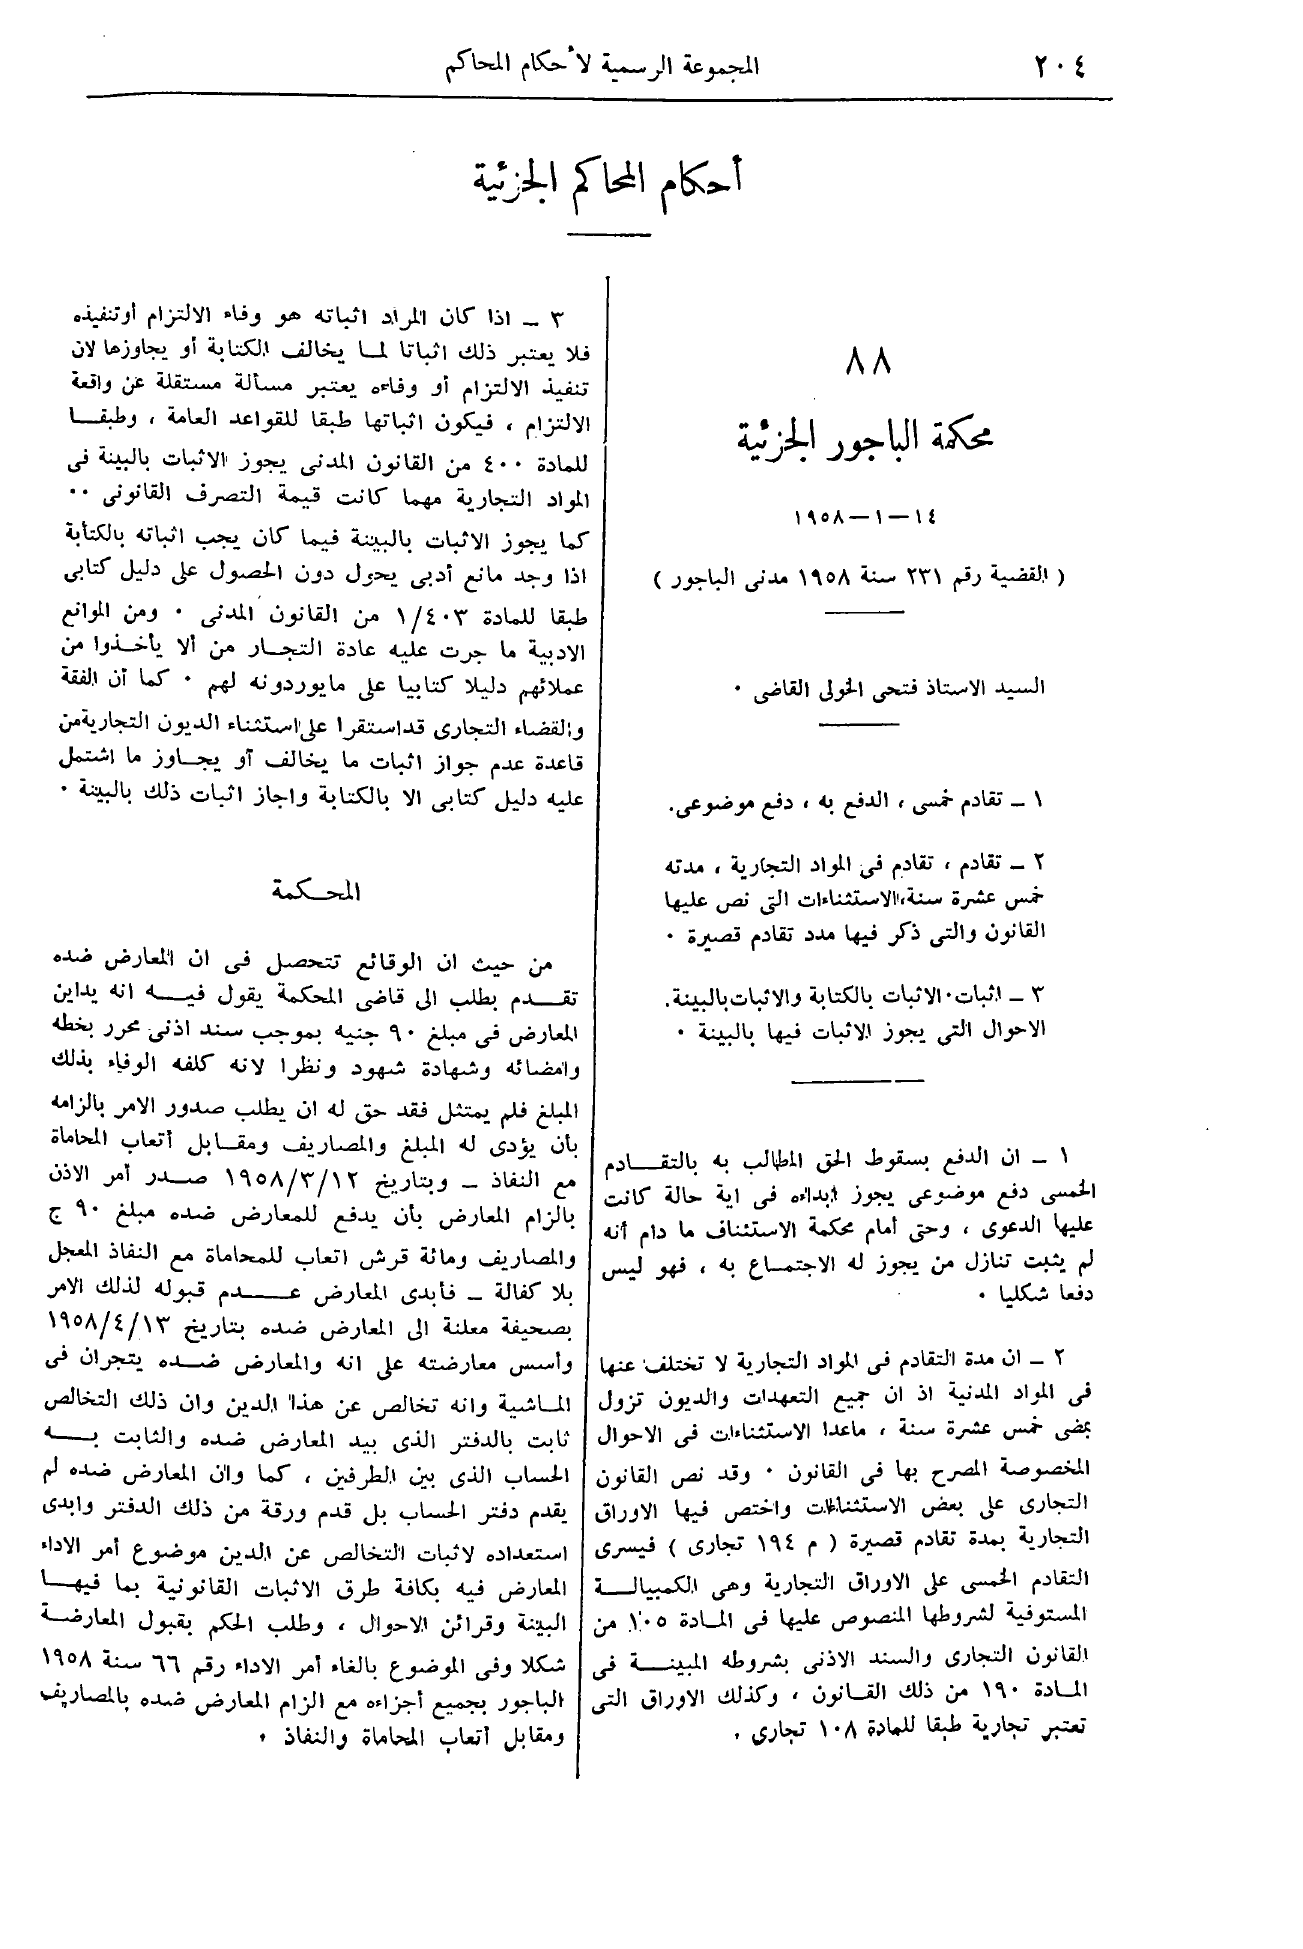 ٢٠٤
المجموعة الرسمية لأحكام المحاكم
أحكام المحاكم الجزئية
٨٨
محكمة الباجور الجزئية
١٤-١-١٩٥٨
( القضية رقم ٢٣١ سنة ١٩٥٨ مدنى الباجور )
السيد الاستاذ فتحى الخولى القاضى ٠
١ ـ تقادم خمسى ، الدفع به ، دفع موضوعى.
٢ ـ تقادم ، تقادم فى المواد التجارية ، مدته
خمس عشرة سنة، الاستثناءات التى نص عليها
القانون والتى ذكر فيها مدد تقادم قصيرة ٠
٣ ـ اثبات٠ الاثبات بالكتابة والاثبات بالبينة.
الاحوال التى يجوز الاثبات فيها بالبينة ٠
١ ـ ان الدفع بسقوط الحق المطالب به بالتقادم
الخمسى دفع موضوعى يجوز ابداءه فى اية حالة كانت
عليها الدعوى ، وحتى أمام محكمة الاستئناف ما دام أنه
لم يثبت تنازل من يجوز له الاجتماع به ، فهو ليس
دفعا شكليا ٠
٢ ـ ان مدة التقادم فى المواد التجارية لا تختلف عنها
فى المواد المدنية اذ ان جميع التعهدات والديون تزول
بمضى خمس عشرة سنة ، ماعدا الاستثناءات فى الاحوال
المخصوصة المصرح بها فى القانون ٠ وقد نص القانون
التجارى على بعض الاستثناءات واختص فيها الاوراق
التجارية بمدة تقادم قصيرة ( م ١٩٤ تجارى ) فيسرى
التقادم الخمسى على الاوراق التجارية وهى الكمبيالة
المستوفية لشروطها المنصوص عليها فى المادة ١٠٥ من
القانون التجارى والسند الاذنى بشروطه المبينة فى
المادة ١٩٠ من ذلك القانون ، وكذلك الاوراق التى
تعتبر تجارية طبقا للمادة ١٠٨ تجارى .
٣ ـ اذا كان المراد اثباته هو وفاء الالتزام أوتنفيذه
فلا يعتبر ذلك اثباتا لما يخالف الكتابة أو يجاوزها لان
تنفيذ الالتزام أو وفاءه يعتبر مسألة مستقلة عن واقعة
الالتزام ، فيكون اثباتها طبقا للقواعد العامة ، وطبقا
للمادة ٤٠٠ من القانون المدنى يجوز الاثبات بالبينة فى
المواد التجارية مهما كانت قيمة التصرف القانونى ٠٠
كما يجوز الاثبات بالبينة فيما كان يجب اثباته بالكتابة
اذا وجد مانع أدبى يحول دون الحصول على دليل كتابى
طبقا للمادة ١/٤٠٣ من القانون المدنى ٠ ومن الموانع
الادبية ما جرت عليه عادة التجار من ألا يأخذوا من
عملائهم دليلا كتابيا على مايوردونه لهم ٠ كما أن الفقة
والقضاء التجارى قداستقرا على استثناء الديون التجارية من
قاعدة عدم جواز اثبات ما يخالف أو يجاوز ما اشتمل
عليه دليل كتابى الا بالكتابة واجاز اثبات ذلك بالبينة ٠
المحكمة
من حيث ان الوقائع تتحصل فى ان المعارض ضده
تقدم بطلب الى قاضى المحكمة يقول فيه انه يداين
المعارض فى مبلغ ٩٠ جنيه بموجب سند اذنى محرر بخطه
وامضائه وشهادة شهود ونظرا لانه كلفه الوفاء بذلك
المبلغ فلم يمتثل فقد حق له ان يطلب صدور الامر بالزامه
بأن يؤدى له المبلغ والمصاريف ومقابل أتعاب المحاماة
مع النفاذ ـ وبتاريخ ١٩٥٨/٣/١٢ صدر أمر الاذن
بالزام المعارض بأن يدفع للمعارض ضده مبلغ ٩٠ ج
والمصاريف ومائة قرش اتعاب للمحاماة مع النفاذ المعجل
بلا كفالة ـ فأبدى المعارض عدم قبوله لذلك الامر
بصحيفة معلنة الى المعارض ضده بتاريخ ١٩٥٨/٤/١٣
وأسس معارضته على انه والمعارض ضده يتجران فى
الماشية وانه تخالص عن هذا الدين وان ذلك التخالص
ثابت بالدفتر الذى بيد المعارض ضده والثابت به
الحساب الذى بين الطرفين ، كما وان المعارض ضده لم
يقدم دفتر الحساب بل قدم ورقة من ذلك الدفتر وابدى
استعداده لاثبات التخالص عن الدين موضوع أمر الاداء
المعارض فيه بكافة طرق الاثبات القانونية بما فيها
البينة وقرائن الاحوال ، وطلب الحكم بقبول المعارضة
شكلا وفى الموضوع بالغاء أمر الاداء رقم ٦٦ سنة ١٩٥٨
الباجور بجميع أجزاءه مع الزام المعارض ضده بالمصاريف
ومقابل أتعاب المحاماة والنفاذ ٠